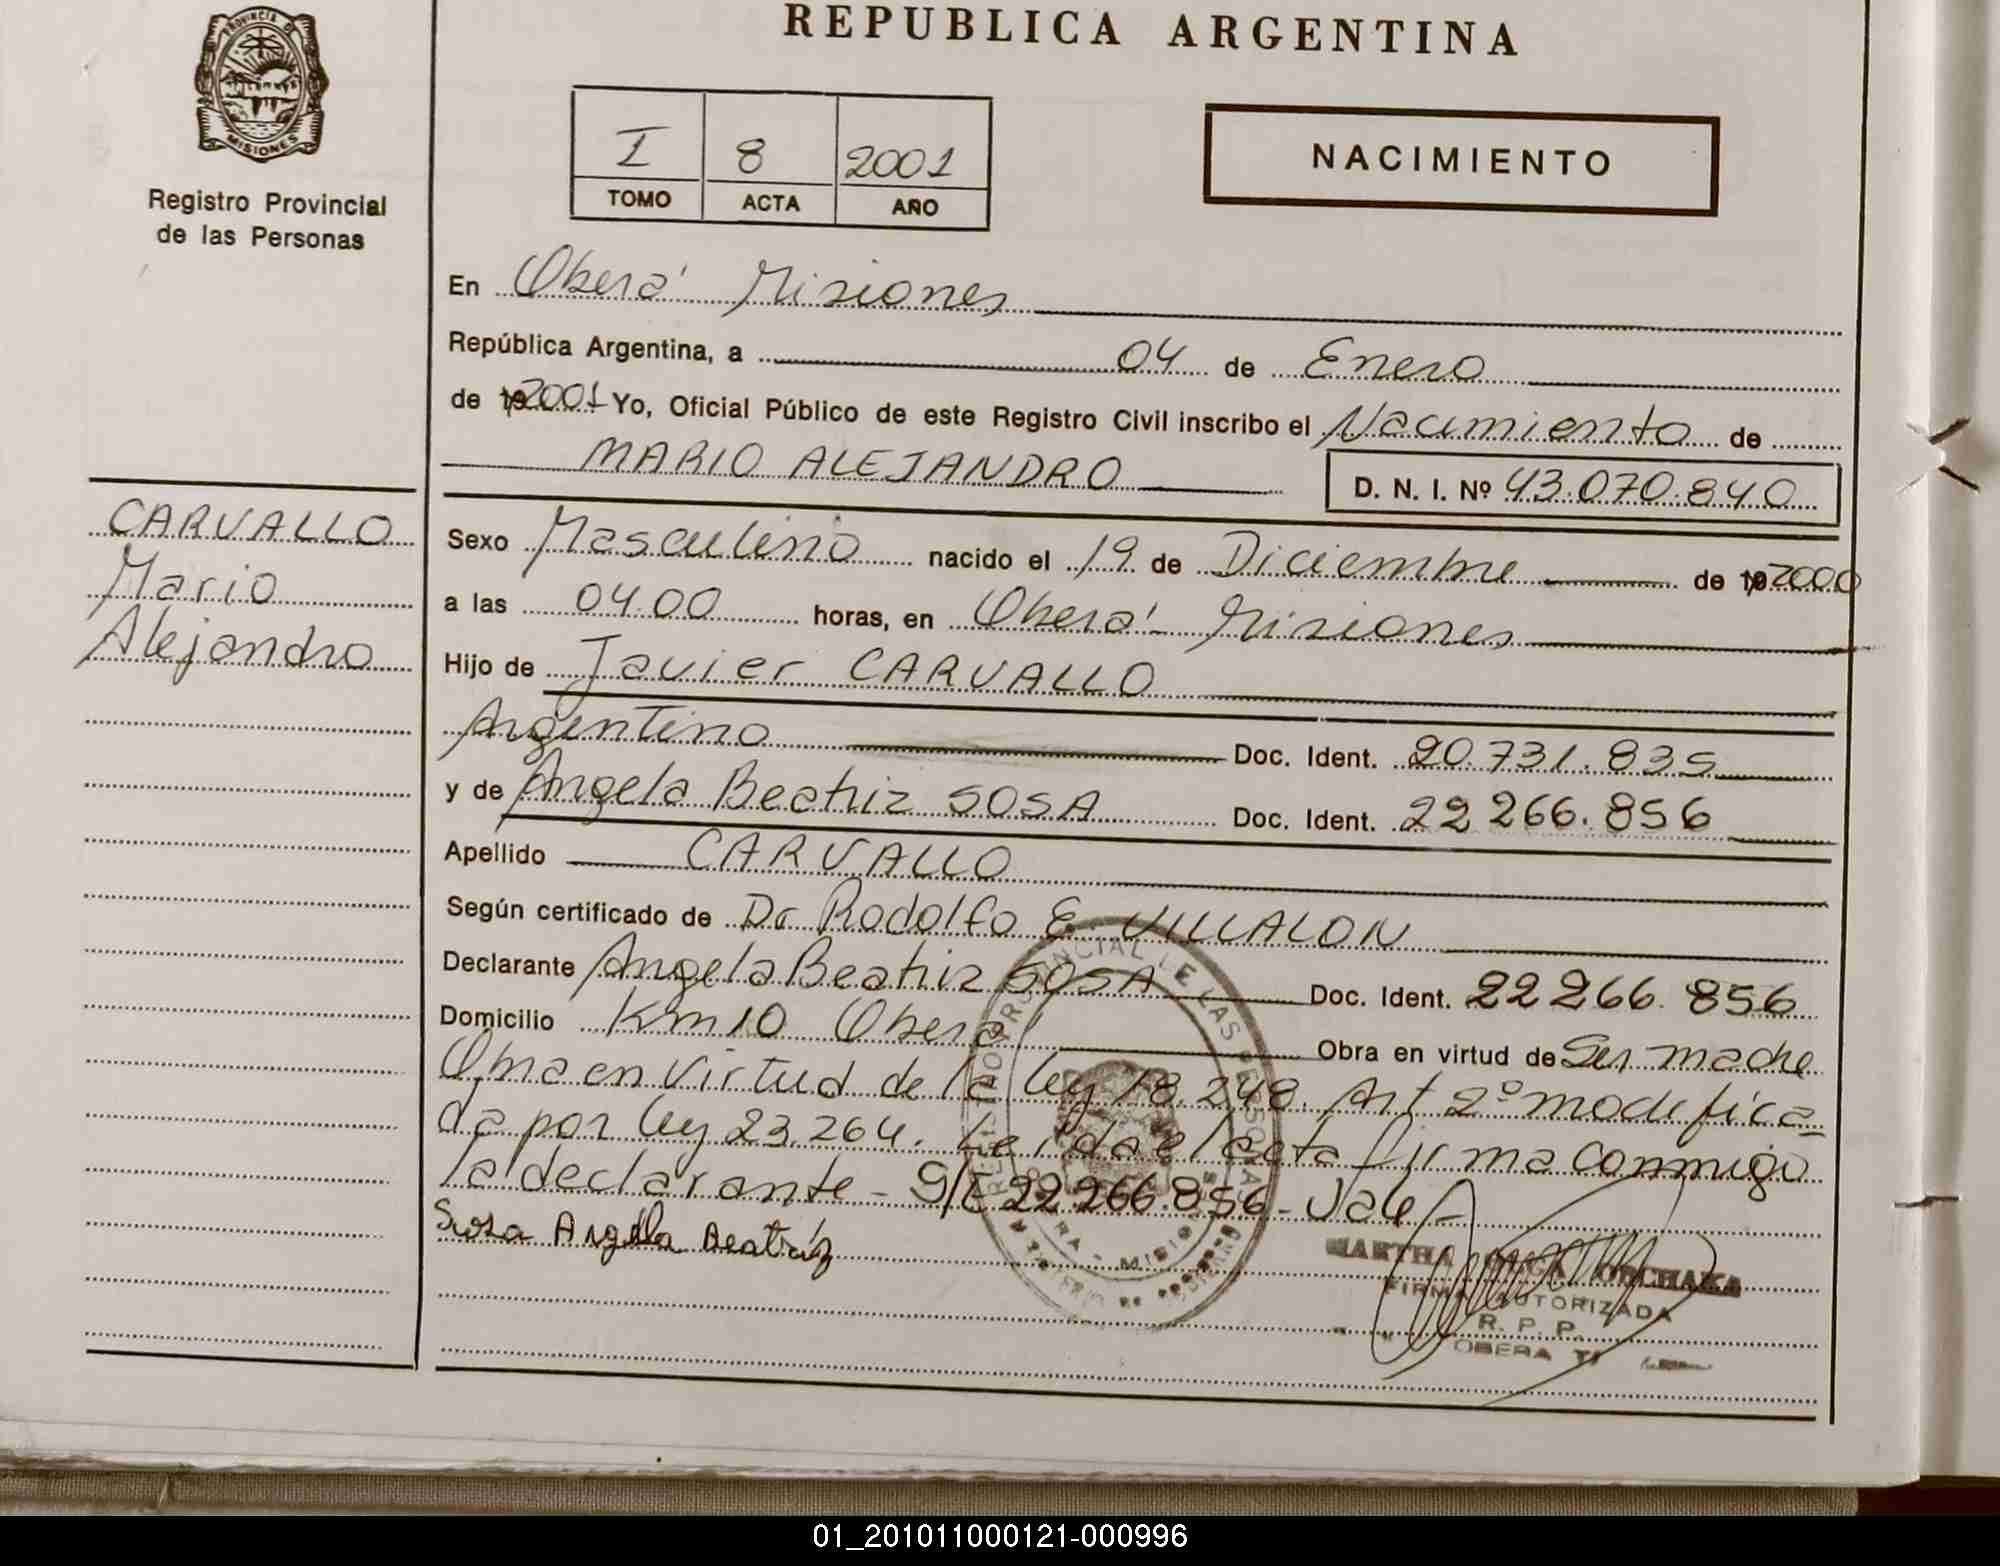 REPUBLICA ARGENTINA
PROVINCIA DE
MISIONES
Registro Provincial
de las Personas
I 8 2001
TOMO ACTA AÑO
NACIMIENTO
En Oberá Misiones
República Argentina, a 04 de Enero
de 19 2001 Yo, Oficial Público de este Registro Civil inscribo el Nacimiento de
MARIO ALEJANDRO D. N. I. Nº 43.070.840
CARVALLO
Mario
Alejandro
Sexo Masculino nacido el 19 de Diciembre de 19 2000
a las 04.00 horas, en Oberá Misiones
Hijo de Javier CARVALLO
Argentino Doc. Ident. 20.731.835
y de Angela Beatriz SOSA Doc. Ident. 22 266.856
Apellido CARVALLO
Según certificado de Dr Rodolfo E VILLALON
Declarante Angela Beatriz SOSA Doc. Ident. 22 266.856
Domicilio Km 10 Oberá Obra en virtud de Ser madre
Obra en virtud de la ley 18.248. Art 2º modifica-
da por ley 23.264. Leída el acta firma conmigo
la declarante - S/E 22 266.856 - Vale -
Sosa Angela Beatriz
MARTHA OLGA
FIRMA AUTORIZADA
R. P. P.
OBERA
01_201011000121-000996